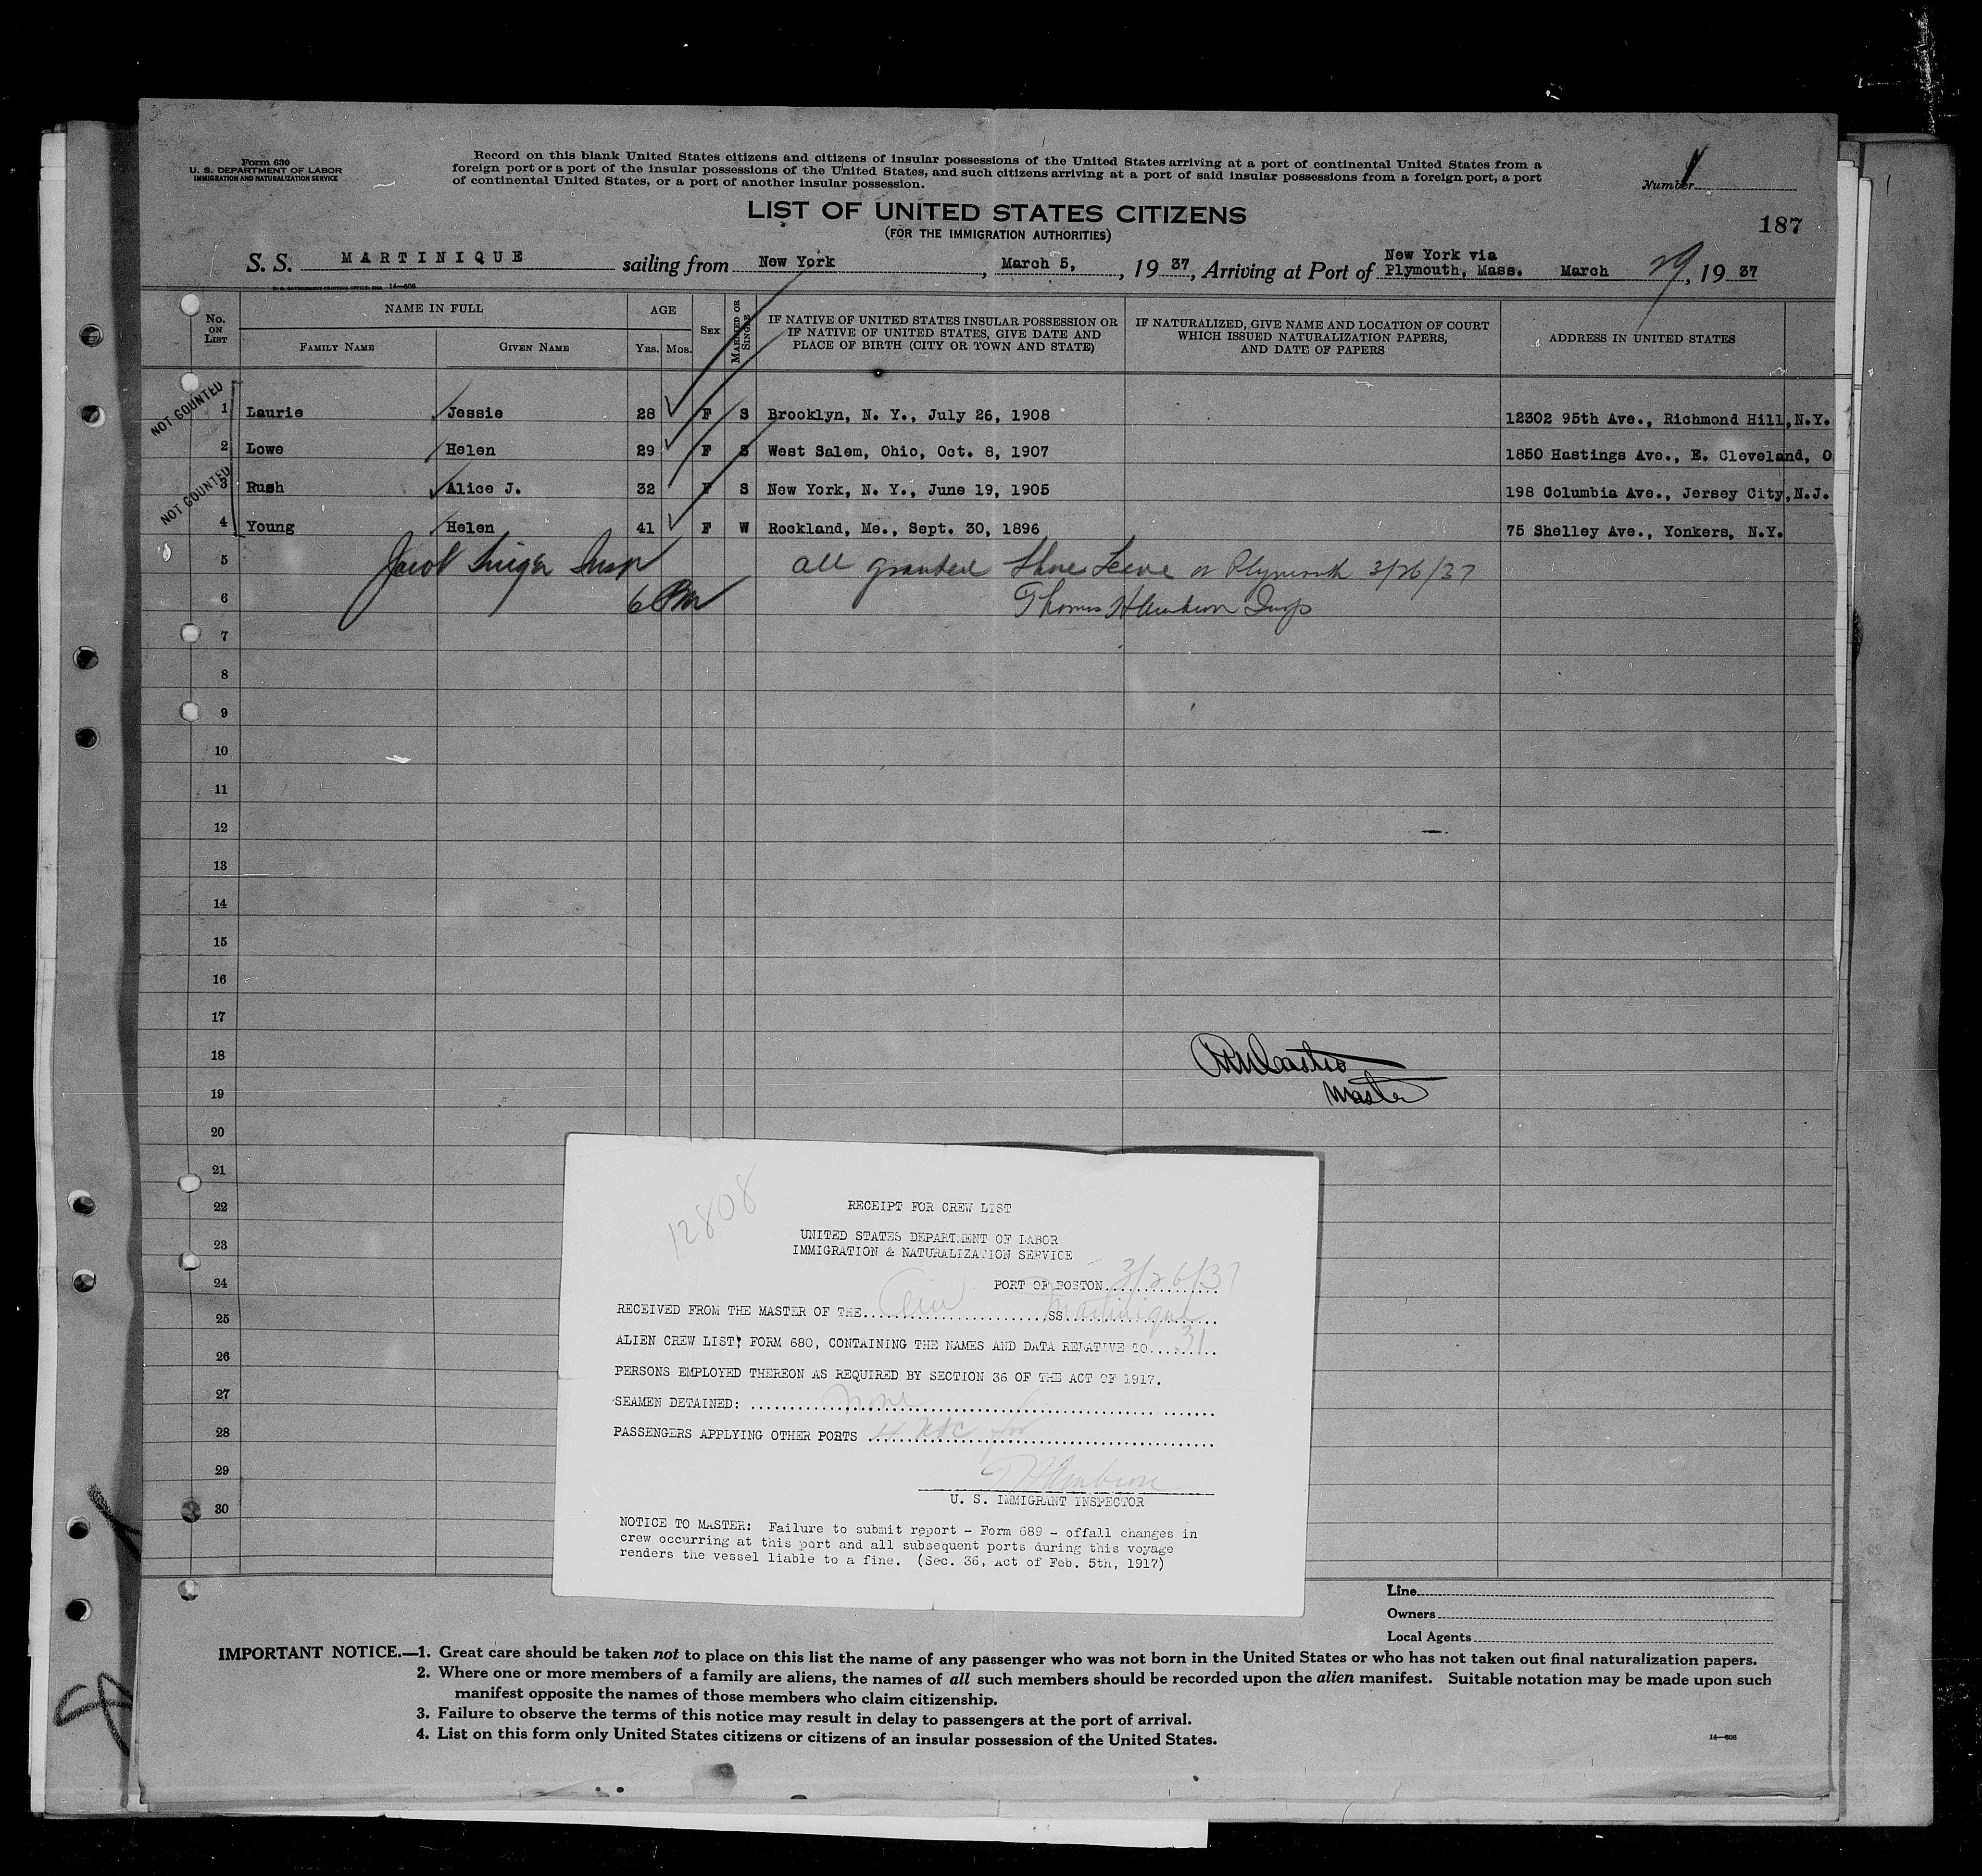 Form 630
U. S. DEPARTMENT OF LABOR
IMMIGRATION AND NATURALIZATION SERVICE
Record on this blank United States citizens and citizens of insular possessions of the United States arriving at a port of continental United States from a
foreign port or a port of the insular possessions of the United States, and such citizens arriving at a port of said insular possessions from a foreign port, a port
of continental United States, or a port of another insular possession.
Number
LIST OF UNITED STATES CITIZENS
(FOR THE IMMIGRATION AUTHORITIES)
187
S. S. MARTINIQUE sailing from New York, March 5, , 19 37, Arriving at Port of New York via Plymouth, Mass. March 29, 19 37
14—608
No. ON LIST
NAME IN FULL
FAMILY NAME
GIVEN NAME
AGE
YRS.
MOS.
SEX
MARRIED OR SINGLE
IF NATIVE OF UNITED STATES INSULAR POSSESSION OR
IF NATIVE OF UNITED STATES, GIVE DATE AND
PLACE OF BIRTH (CITY OR TOWN AND STATE)
IF NATURALIZED, GIVE NAME AND LOCATION OF COURT
WHICH ISSUED NATURALIZATION PAPERS,
AND DATE OF PAPERS
ADDRESS IN UNITED STATES
NOT COUNTED
1 Laurie Jessie 28 F S Brooklyn, N. Y., July 26, 1908 12302 95th Ave., Richmond Hill, N.Y.
2 Lowe Helen 29 F S West Salem, Ohio, Oct. 8, 1907 1850 Hastings Ave., E. Cleveland, O
NOT COUNTED
3 Rush Alice J. 32 F S New York, N. Y., June 19, 1905 198 Columbia Ave., Jersey City, N.J.
4 Young Helen 41 F W Rockland, Me., Sept. 30, 1896 75 Shelley Ave., Yonkers, N.Y.
5 Jacob Insp all granted Shore Leave at Plymouth 3/26/37
6 6 PM Thomas Insp
7
8
9
10
11
12
13
14
15
16
17
18
Master
19
20
21
22
23
24
25
26
27
28
29
30
12808
RECEIPT FOR CREW LIST
UNITED STATES DEPARTMENT OF LABOR
IMMIGRATION & NATURALIZATION SERVICE
PORT OF BOSTON 3/26/37
RECEIVED FROM THE MASTER OF THE SS Martinique
ALIEN CREW LIST, FORM 680, CONTAINING THE NAMES AND DATA RELATIVE TO 31
PERSONS EMPLOYED THEREON AS REQUIRED BY SECTION 36 OF THE ACT OF 1917.
SEAMEN DETAINED: None
PASSENGERS APPLYING OTHER PORTS 4
U. S. IMMIGRANT INSPECTOR
NOTICE TO MASTER: Failure to submit report - Form 689 - offall changes in
crew occurring at this port and all subsequent ports during this voyage
renders the vessel liable to a fine. (Sec. 36, Act of Feb. 5th, 1917)
Line
Owners
Local Agents
IMPORTANT NOTICE.—1. Great care should be taken not to place on this list the name of any passenger who was not born in the United States or who has not taken out final naturalization papers.
2. Where one or more members of a family are aliens, the names of all such members should be recorded upon the alien manifest. Suitable notation may be made upon such
manifest opposite the names of those members who claim citizenship.
3. Failure to observe the terms of this notice may result in delay to passengers at the port of arrival.
4. List on this form only United States citizens or citizens of an insular possession of the United States.
14—608